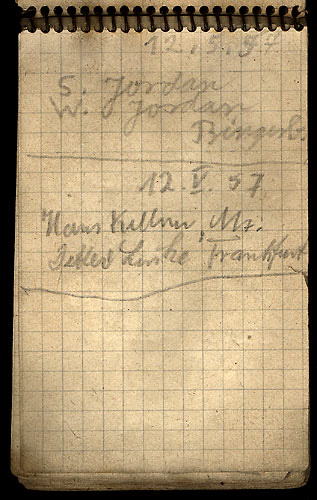 12.5.57
S. Jordan
W. Jordan
Bingerb.
12.V.57
Hans Keller, Mz.
Detlef Linke, Frankfurt